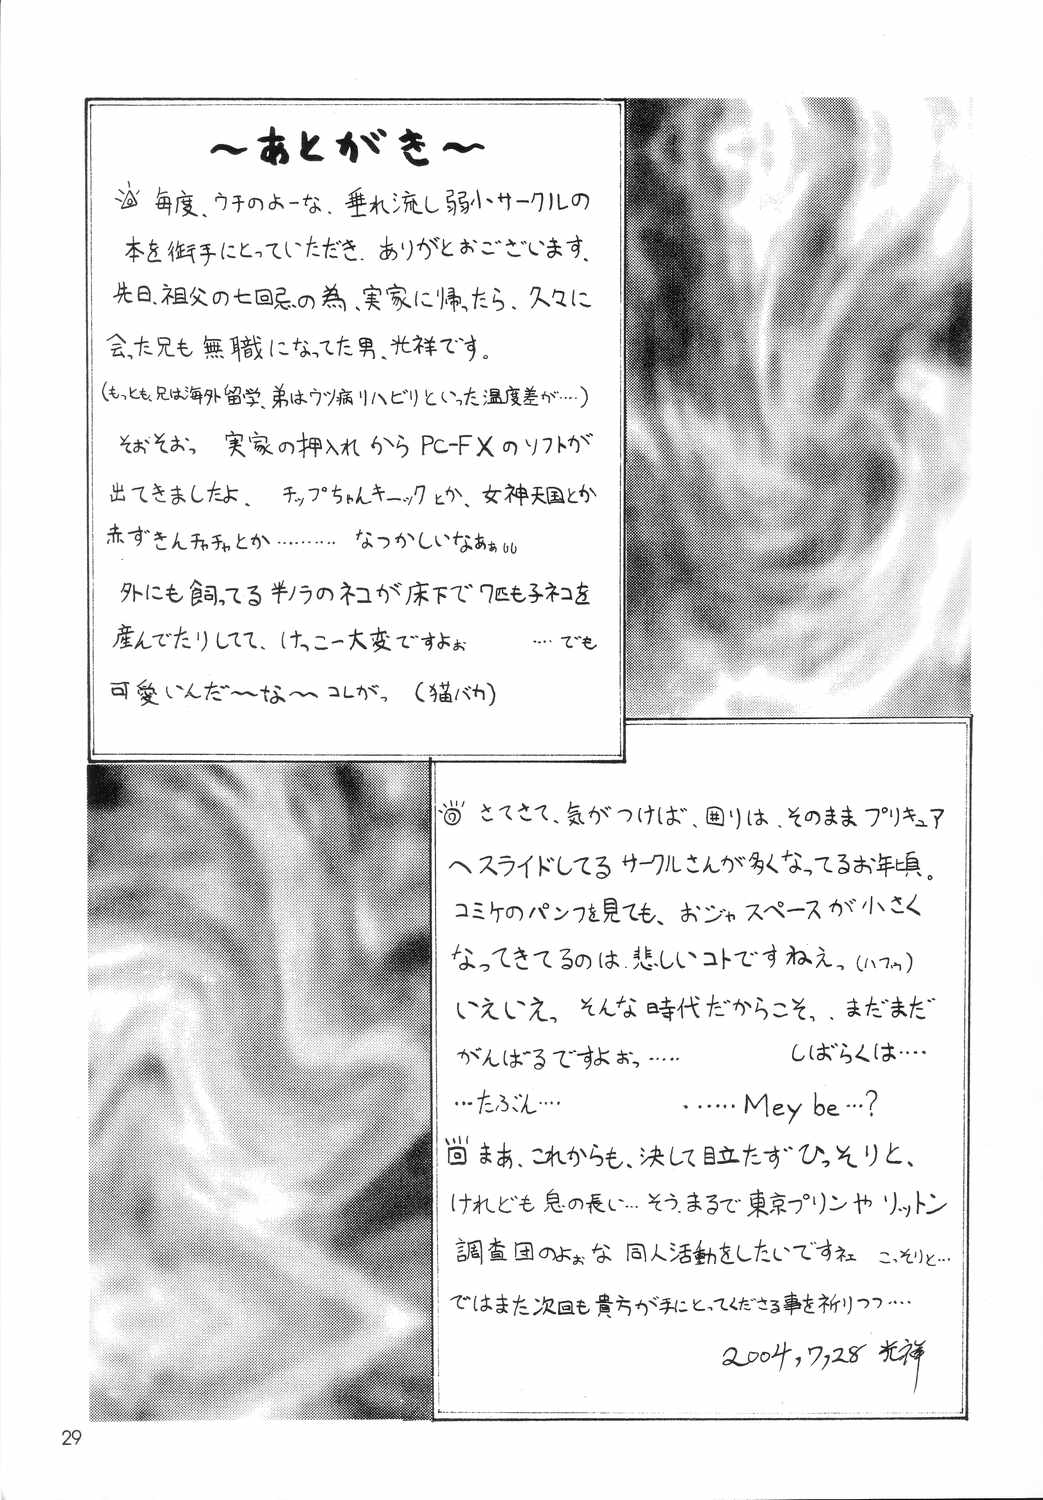 ～あとがき～
毎度、ウチのよーな、垂れ流し弱小サークルの
本を御手にとっていただき、ありがとおございます、
先日、祖父の七回忌の為、実家に帰ったら、久々に
会った兄も無職になってた男、光祥です。
(もっとも、兄は海外留学、弟はウツ病リハビリといった温度差が‥‥)
そおそおっ 実家の押入れからPC-FXのソフトが
出てきましたよ、 チップちゃんキーックとか、女神天国とか
赤ずきんチャチャとか………… なつかしいなあぁぃぃ
外にも飼ってる半ノラのネコが床下で7匹も子ネコを
産んでたりしてて、けっこー大変ですよぉ ‥‥でも
可愛いんだ～な～コレがっ (猫バカ)
さてさて、気がつけば、囲りは、そのままプリキュア
へスライドしてるサークルさんが多くなってるお年頃。
コミケのパンフを見ても、おジャスペースが小さく
なってきてるのは、悲しいコトですねぇっ(ハフゥ)
いえいえっ そんな時代だからこそっ、まだまだ
がんばるですよぉっ‥‥‥ しばらくは‥‥
‥‥たぶん‥‥ ・‥‥‥Mey be‥‥?
まあ、これからも、決して目立たずひっそりと、
けれども息の長い‥‥そう、まるで東京プリンやリットン
調査団のよぉな同人活動をしたいですネェ こっそりと‥‥
ではまた次回も貴方が手にとってくださる事を祈りつつ‥‥
2004,7,28 光祥
29